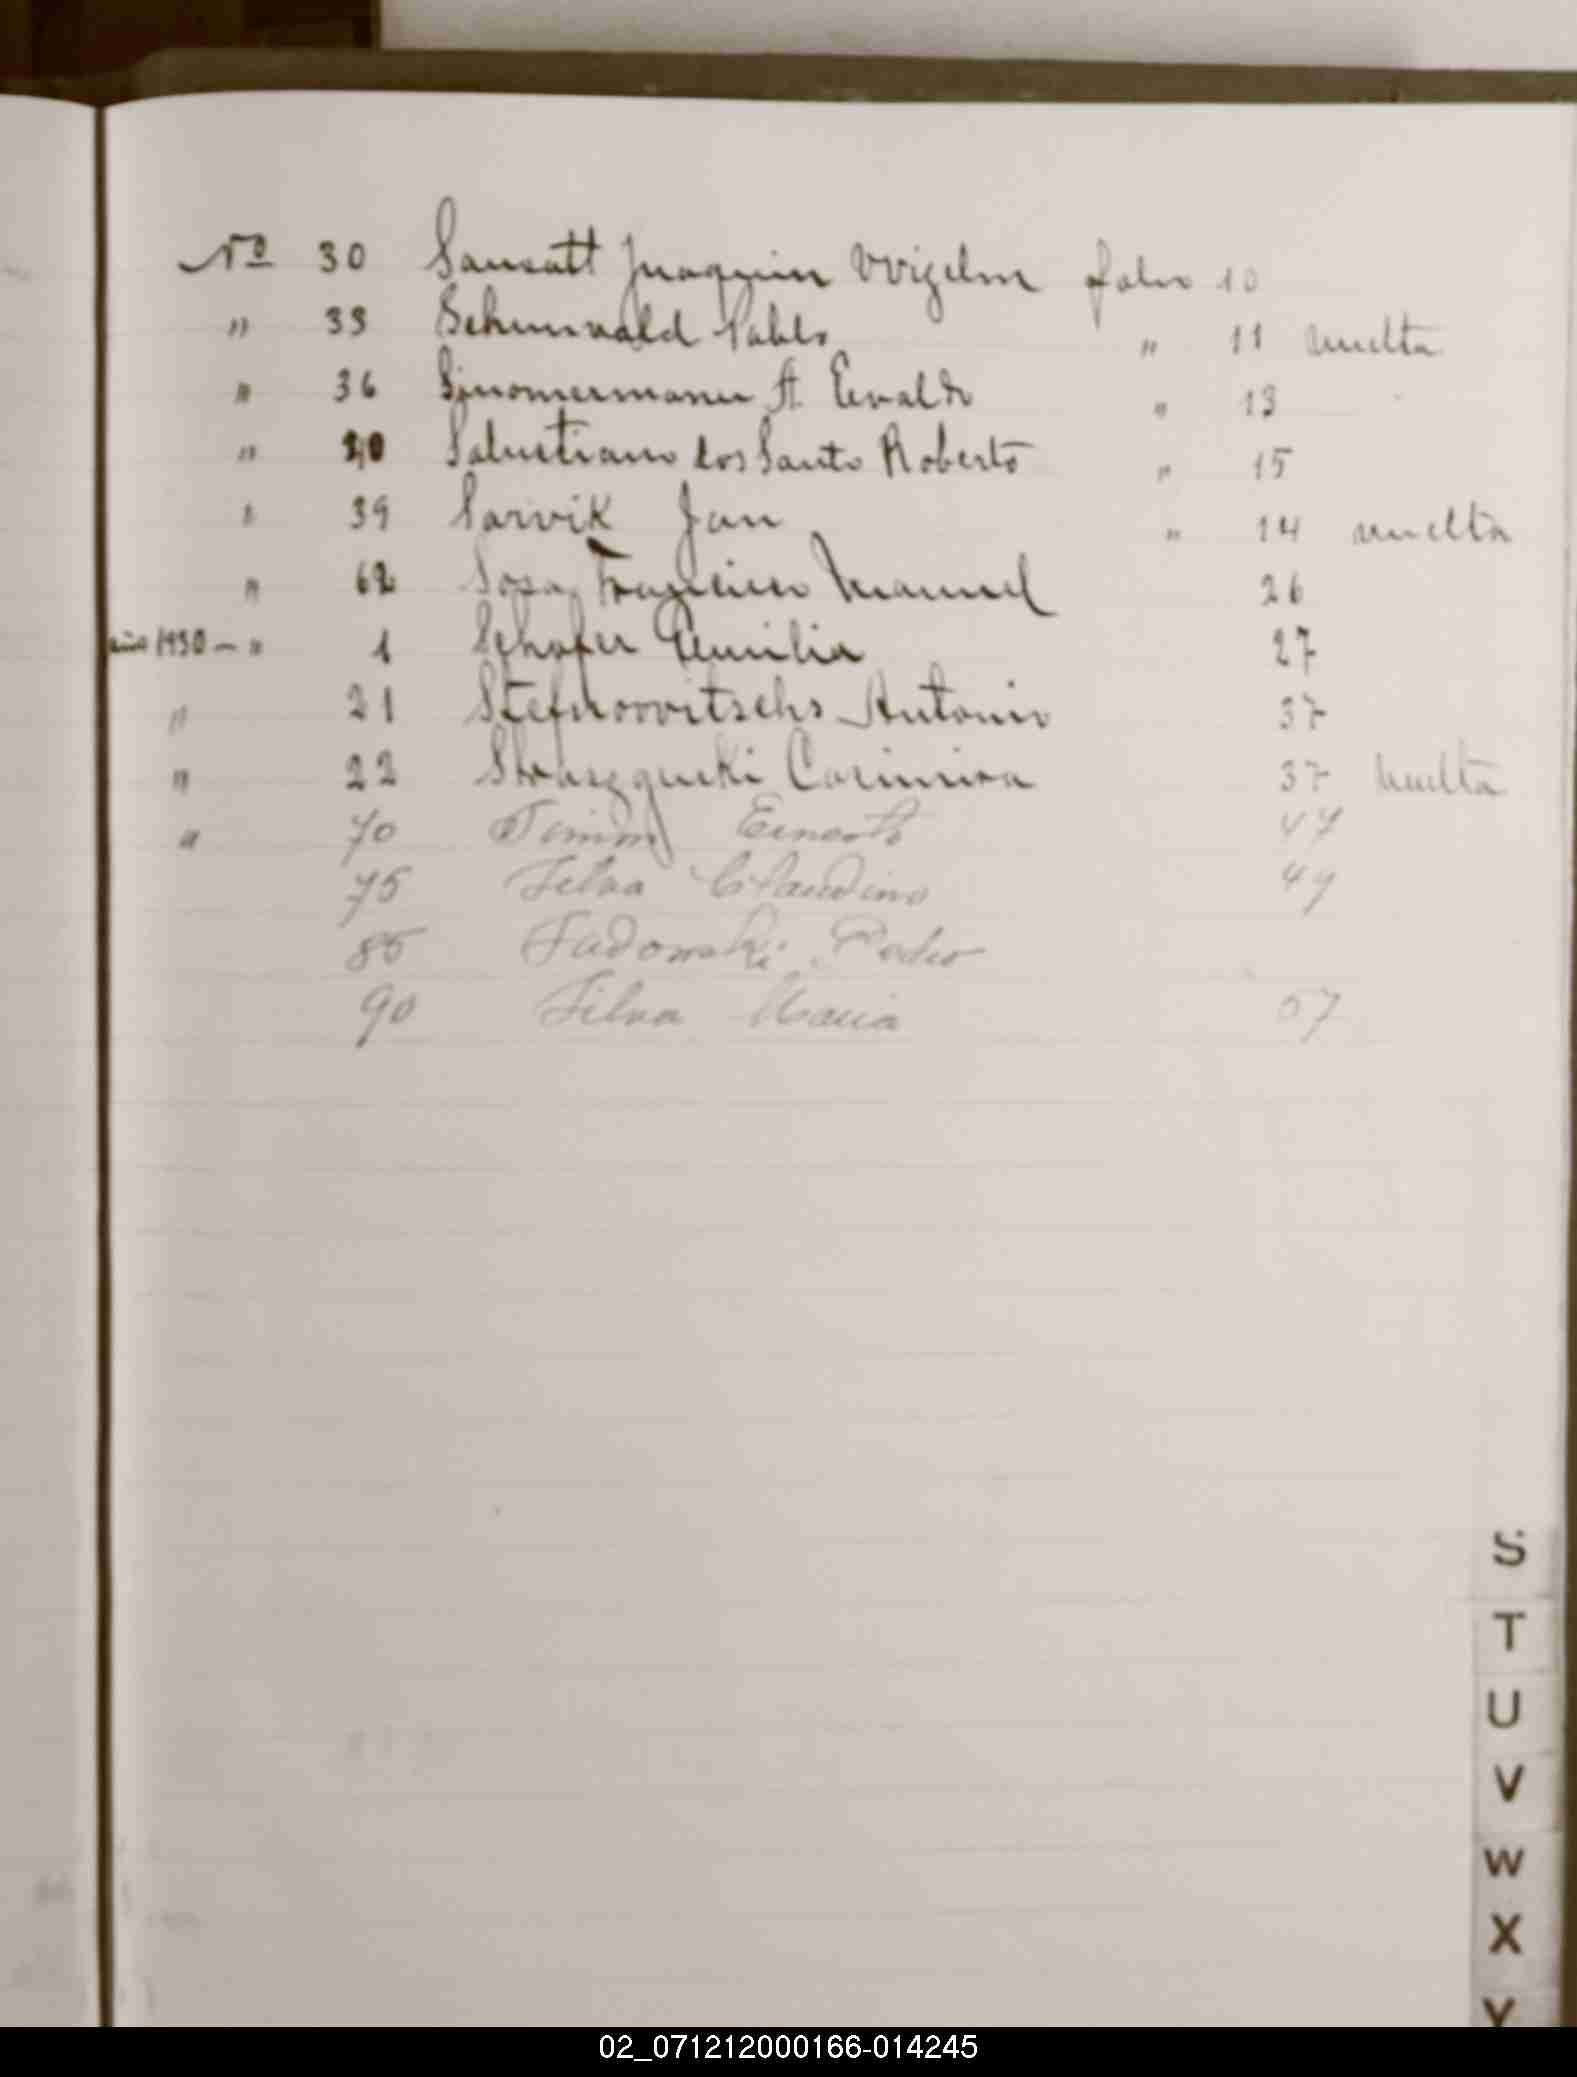 Nº 30 Sansatt Juaquin Wigelm folio 10
" 33 Schunvald Pablo " 11 vuelta
" 36 A. Evaldo " 13
" 40 Salustiano dos Santo Roberto " 15
" 39 Sarvik Jan " 14 vuelta
" 62 Sosa Francisco Manuel 26
año 1930 — " 1 Schafer Emilia 27
" 21 Antonio 37
" 22 Casimira 37 vuelta
" 70 Ernesto 47
75 Silva Claudino 49
85 Sadowski Pedro
90 Silva Maria 57
S
T
U
V
W
X
Y
02_071212000166-014245